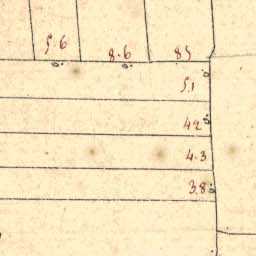 5.6 8.6 85
51
42
4.3
3.8